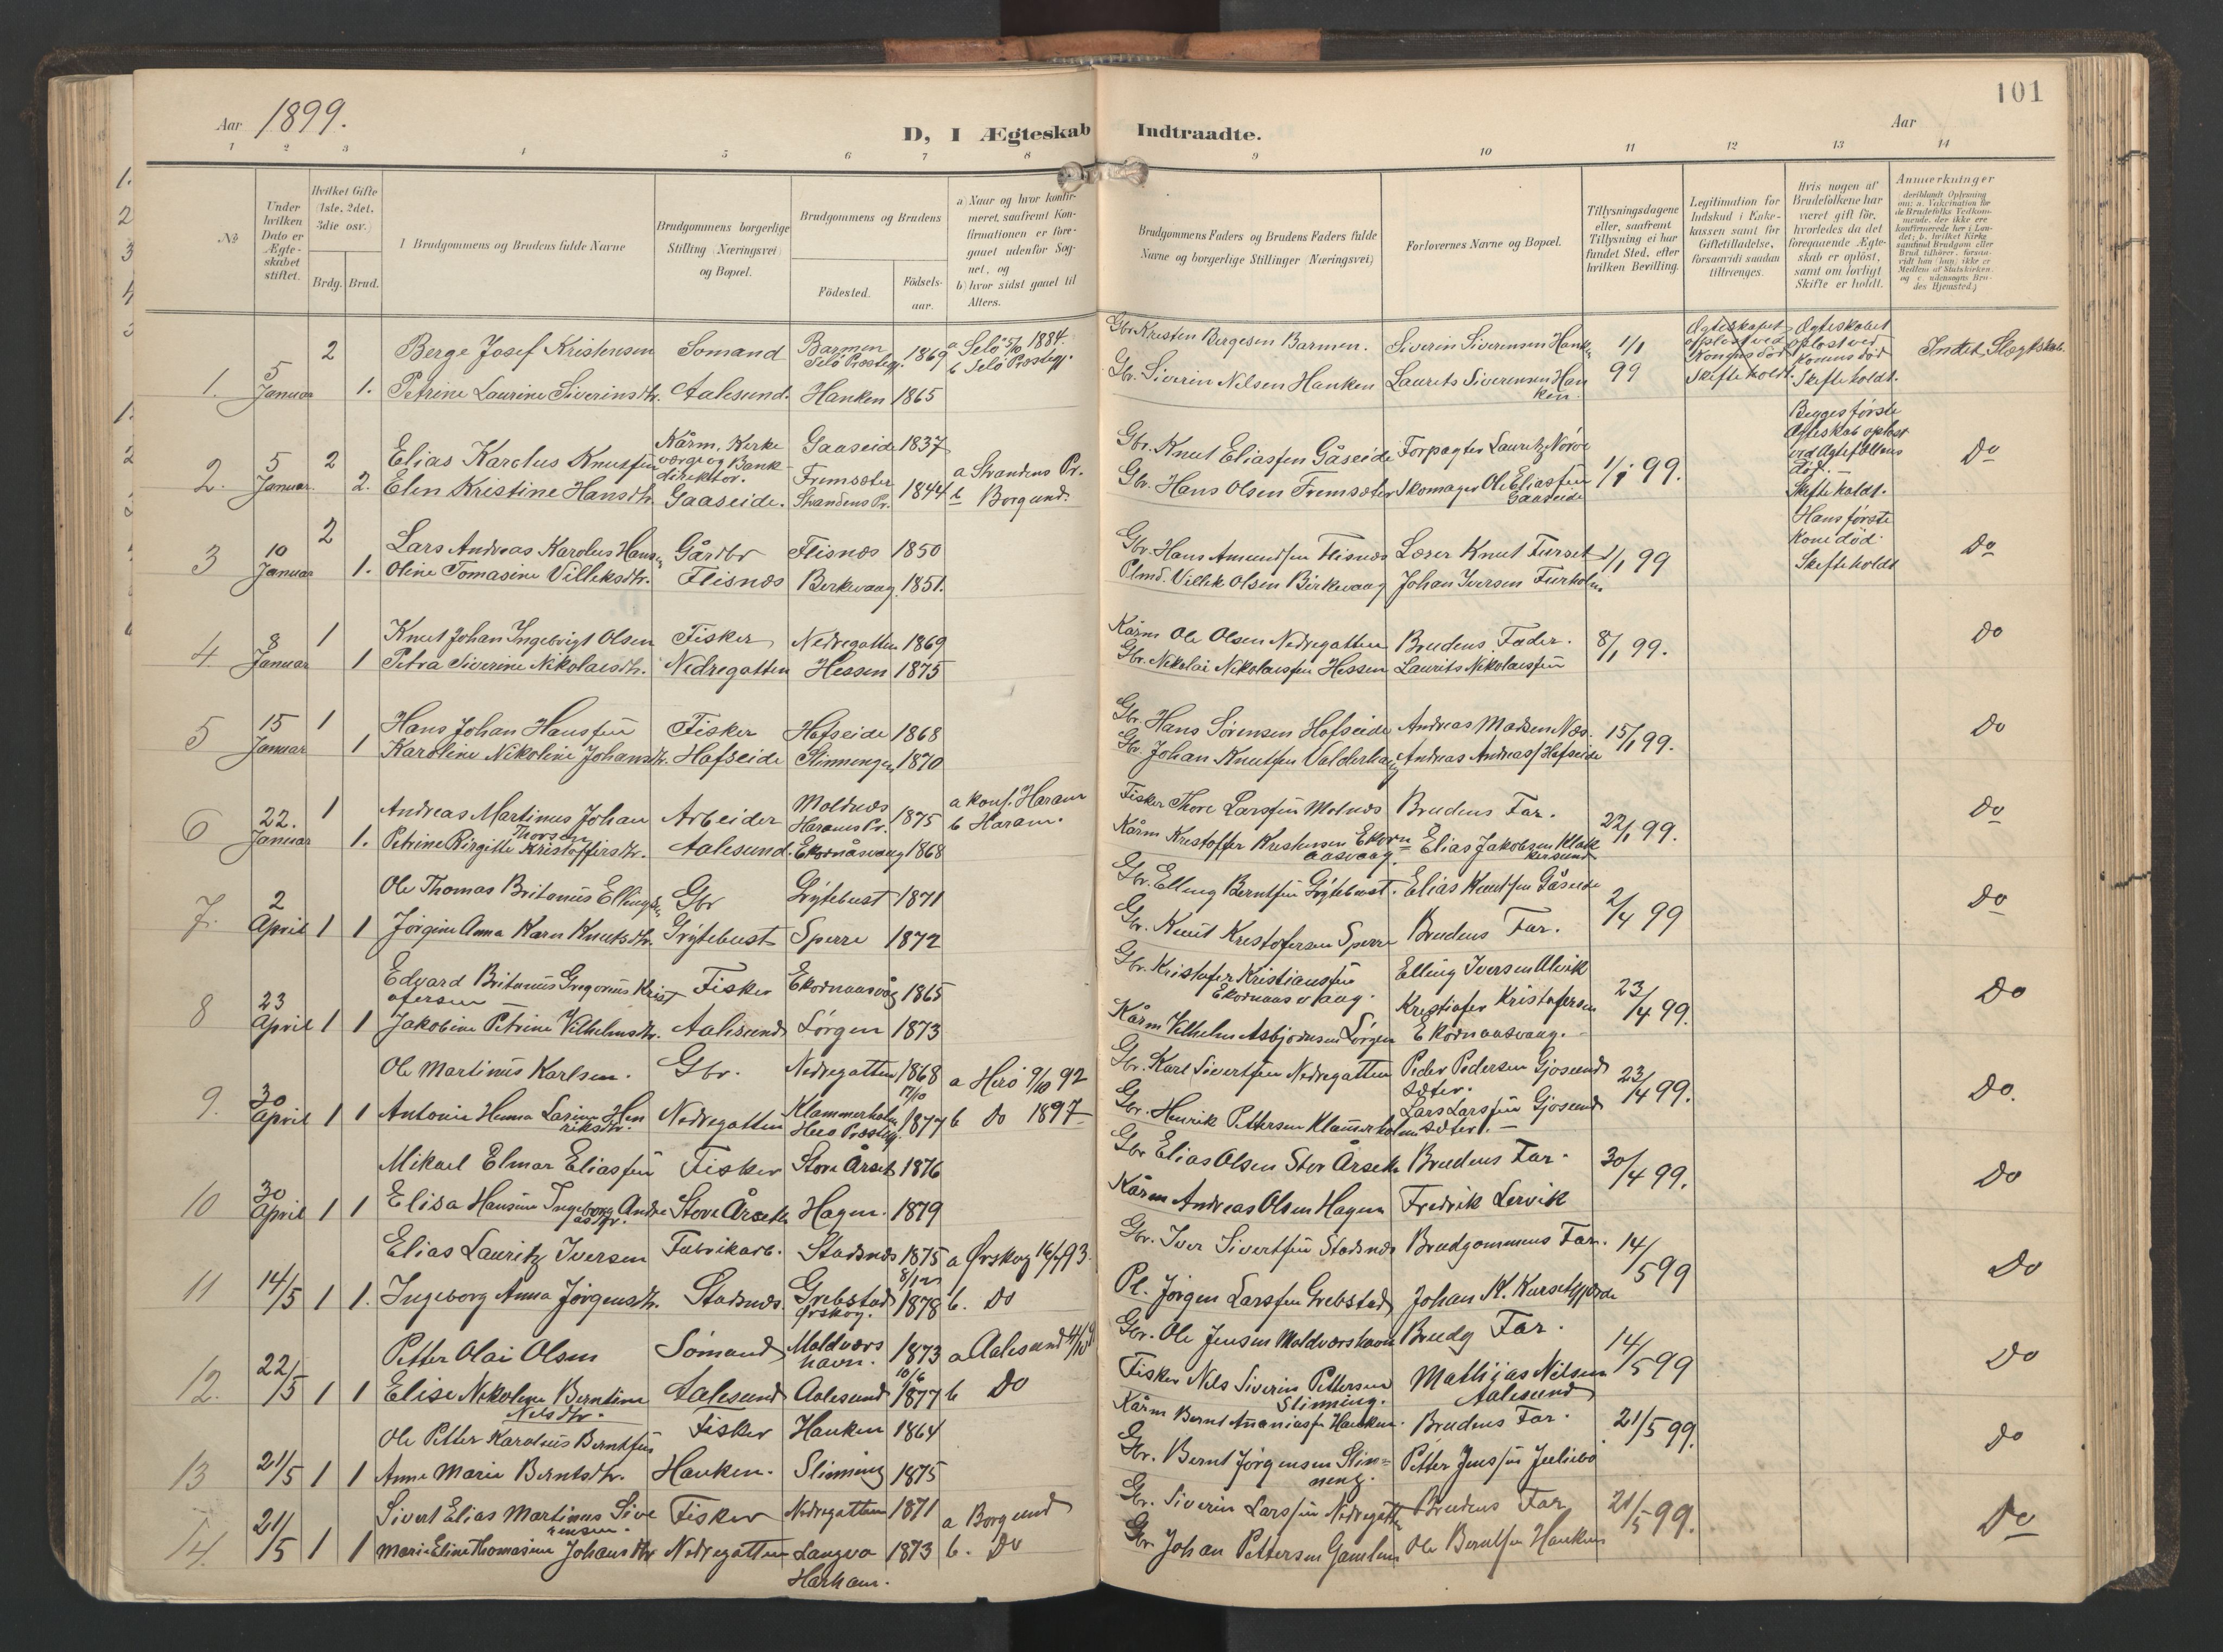 101
Aar 1899.
D, I Ægteskab Indtraadte.
Aar
1 2 3 4 5 6 7 8 9 10 11 12 13 14
№
Under hvilken Dato er Ægteskabet stiftet.
Hvilket Gifte (1ste, 2det, 3die osv.)
Brdg. Brud.
Brudgommens og Brudens fulde Navne
Brudgommens borgerlige Stilling (Næringsvei) og Bopæl.
Brudgommens og Brudens
Födested.
Födselsaar.
a) Naar og hvor konfirmeret, saafremt Konfirmationen er foregaaet udenfor Sognet, og
b) hvor sidst gaaet til Alters.
Brudgommens Faders og Brudens Faders fulde Navne og borgerlige Stillinger (Næringsvei)
Forlovernes Navne og Bopæl.
Tillysningsdagene eller, saafremt Tillysning ei har fundet Sted, efter hvilken Bevilling.
Legitimation for Indskud i Enkekassen samt for Giftetilladelse, forsaavidt saadan tiltrænges.
Hvis nogen af Brudefolkene har været gift för, hvorledes da det foregaaende Ægteskab er oplöst, samt om lovligt Skifte er holdt.
Anmerkninger
1. 5 Januar 2 Berge Josef Kristensen Sömand Barmen Selö Præstegj. 1869 a Selö 5/10 1884. b Selö Præstegj. Gbr. Kristen Bergesen Barmen. Siverin Siverinsen Hanken 1/1 99 Ægteskabet opløst ved Konens død Skifte holdt. Ægteskabet opløst ved Konens død Skifte holdt. Intet Slægtskab.
1. Petrine Laurine Siverinsdtr. Aalesund. Hanken 1865 Gbr. Siverin Nilsen Hanken Laurits Siverinsen Hanken.
2. 5 Januar. 2 Elias Karolus Knutsen Kårm, Kirkeværge og Bankdirektør. Gaaseide 1837 Gbr. Knut Eliassen Gåseide Forpagter Lauritz Nörve 1/1 99. Begges første Ægteskab opløst ved Ægtefællens død. Skifte holdt. Do
2. Elen Kristine Hansdtr. Gaaseide. Fremsæter Strandens Pr. 1844 a Strandens Pr. b Borgund. Gbr. Hans Olsen Fremsæter Skomager Ole Eliassen Gaaseide
3 10 Januar 2 Lars Andreas Karolus Hansen Gårdbr Flisnæs 1850 Gbr. Hans Amundsen Flisnæs Lærer Knut Furset 1/1 99 Hans første Kone død. Skifte holdt Do
1. Oline Tomasine Villiksdtr. Flisnæs Berkevaag 1851. Plmd. Villik Olsen Birkevaag Johan Iversen Furholm
4 8 Januar 1 Knut Johan Ingebrigt Olsen Fisker Nedregatten 1869 Kårm Ole Olsen Nedregatten Brudens Fader. 8/1 99. Do
1 Petra Siverine Nikolaisdtr. Nedregatten Hessen 1875 Gbr. Nikolai Nikolaisen Hessen Laurits Nikolaisen
5 15 Januar 1 Hans Johan Hansen Fisker Hofseide 1868 Gbr. Hans Sörensen Hofseide Andreas Madsen Næs. 15/1 99. Do
1 Karoline Nikoline Johansdtr. Hofseide Slinningen 1870 Gbr. Johan Knutsen Valderhaug Andreas Andreas. Hofseide
6 22. Januar 1 Andreas Martinus Johan Thorsen Arbeider Moldnæs Harams Pr. 1875 a Konf. Haram b Haram. Fisker Thore Larssen Molnæs Brudens Far. 22/1 99. Do
1. Petrine Birgitte Kristoffersdtr. Aalesund. Ekornåsvaag 1868 Kårm Kristoffer Kristensen Ekornaasvaag. Elias Jakobsen Klokkersund
7. 2 April 1 Ole Thomas Britanus Ellingsen Gbr Grytebust 1871 Gbr. Elling Berntsen Grytebust. Elias Knutsen Gåseide 2/4 99 Do
1 Jörgine Anna Karn Knutsdtr. Grytebust Sperre 1872 Gbr. Knut Kristofersen Sperre Brudens Far.
8 23 April 1 Edvard Britanus Gregorius Kristofersen Fisker Ekornaasvåg 1865 Gbr. Kristofer Kristiansen Ekornaasvaag. Elling Iversen Alvik 23/4 99. Do
1 Jakobine Petrine Vilhelmsdtr. Aalesund Lörgen 1873 Kårm Vilhelm Asbjörnsen Lörgen Kristofer Kristofersen Ekornaasvaag.
9. 30 April 1 Ole Martinus Karlsen. Gbr. Nedregatten 1868 a Herö 9/10 92 Gbr. Karl Sivertsen Nedregatten Peder Pedersen Gjösundsæter. 23/4 99. Do.
1 Antonie Hanna Larine Henriksdtr. Nedregatten Klammerholm Herö Præstegj. 17/10 1877 b Do 1897 Gbr. Henrik Pettersen Klammerholm Lars Larssen Gjösundsæter.
10 30 April 1 Mikael Elmar Eliassen Fisker Store Årset 1876 Gbr Elias Olsen Stor Årseth Brudens Far. 30/4 99. Do
1 Elisa Hansine Ingeborg Andreasdtr. Store Årseth Hagen. 1879 Kårm Andreas Olsen Hagen Fredrik Lervik
11 14/5 1 Elias Lauritz Iversen Fabrikarb. Stadsnæs 1875 a Ørskog 16/7 93. Gbr. Iver Sivertsen Stadsnæs Brudgommens Far. 14/5 99 Do
1. Ingeborg Anna Jörgensdtr. Stadsnæs. Grebstad Ørskog. 8/12 1878 b. Do Pl. Jörgen Larssen Grebstad Johan K. Kursetgjærde
12. 22/5 1 Petter Olai Olsen Sömand Moldværshavn. 1873 a Aalesund Gbr. Ole Jensen Moldværshavn Brudg Far. 14/5 99 Do
1 Elise Nikoline Berntine Nilsdtr. Aalesund Aalesund 10/6 1877 b Do Fisker Nils Siverin Pettersen Slinning. Mathias Nilsen Aalesund
13 21/5 1 Ole Petter Karolius Berntsen Fisker Hanken 1864 Kårm Bernt Ananiasen Hanken. Brudens Far. 21/5 99. Do
1 Anne Marie Berntsdtr. Hanken. Slinning 1875 Gbr. Bernt Jörgensen Slinning. Petter Jenssen Juliebö
14. 21/5 1 Sivert Elias Martinus Siverinsen. Fisker Nedregatten 1871 a Borgund Gbr. Siverin Larssen Nedregatten Brudens Far 21/5 99. Do
1 Marie Eline Thomasine Johansdtr Nedregatten Langva Harham. 1873 b. Do Gbr Johan Pettersen Gamlem Ole Berntsen Hanken